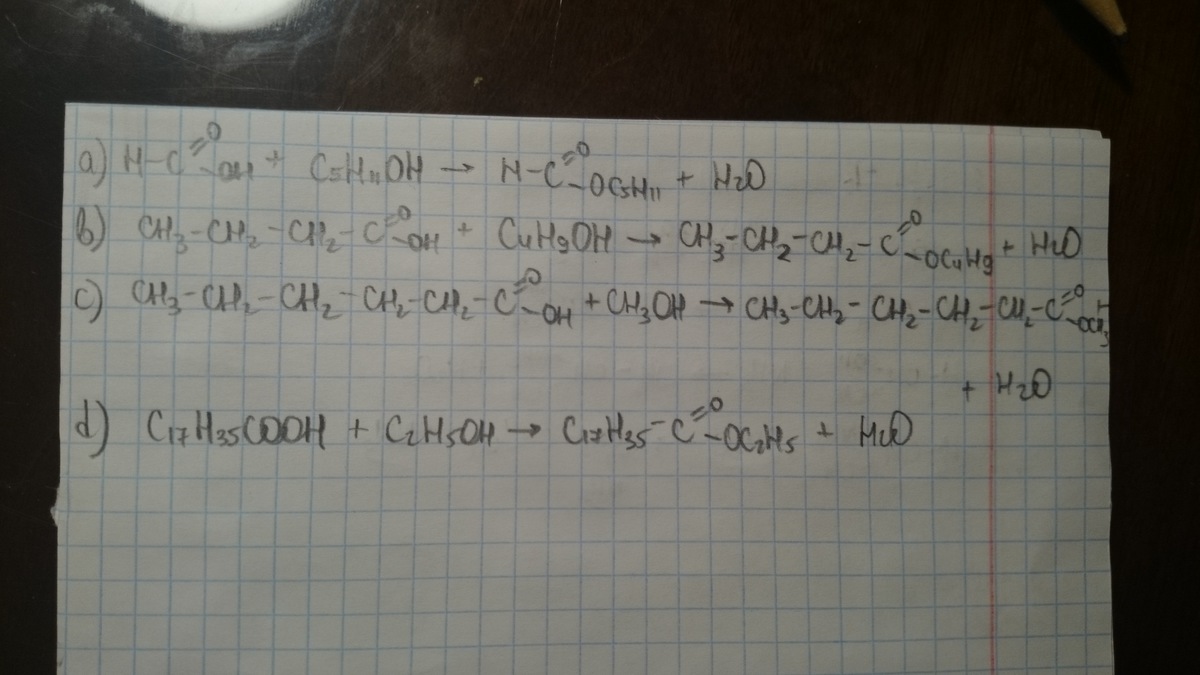 a) H-C=O-OH + C5H11OH → H-C=O-OC5H11 + H2O
b) CH3-CH2-CH2-C=O-OH + C4H9OH → CH3-CH2-CH2-C=O-OC4H9 + H2O
c) CH3-CH2-CH2-CH2-CH2-C=O-OH + CH3OH → CH3-CH2-CH2-CH2-CH2-C=O-OCH3
+ H2O
d) C17H35COOH + C2H5OH → C17H35-C=O-OC2H5 + H2O